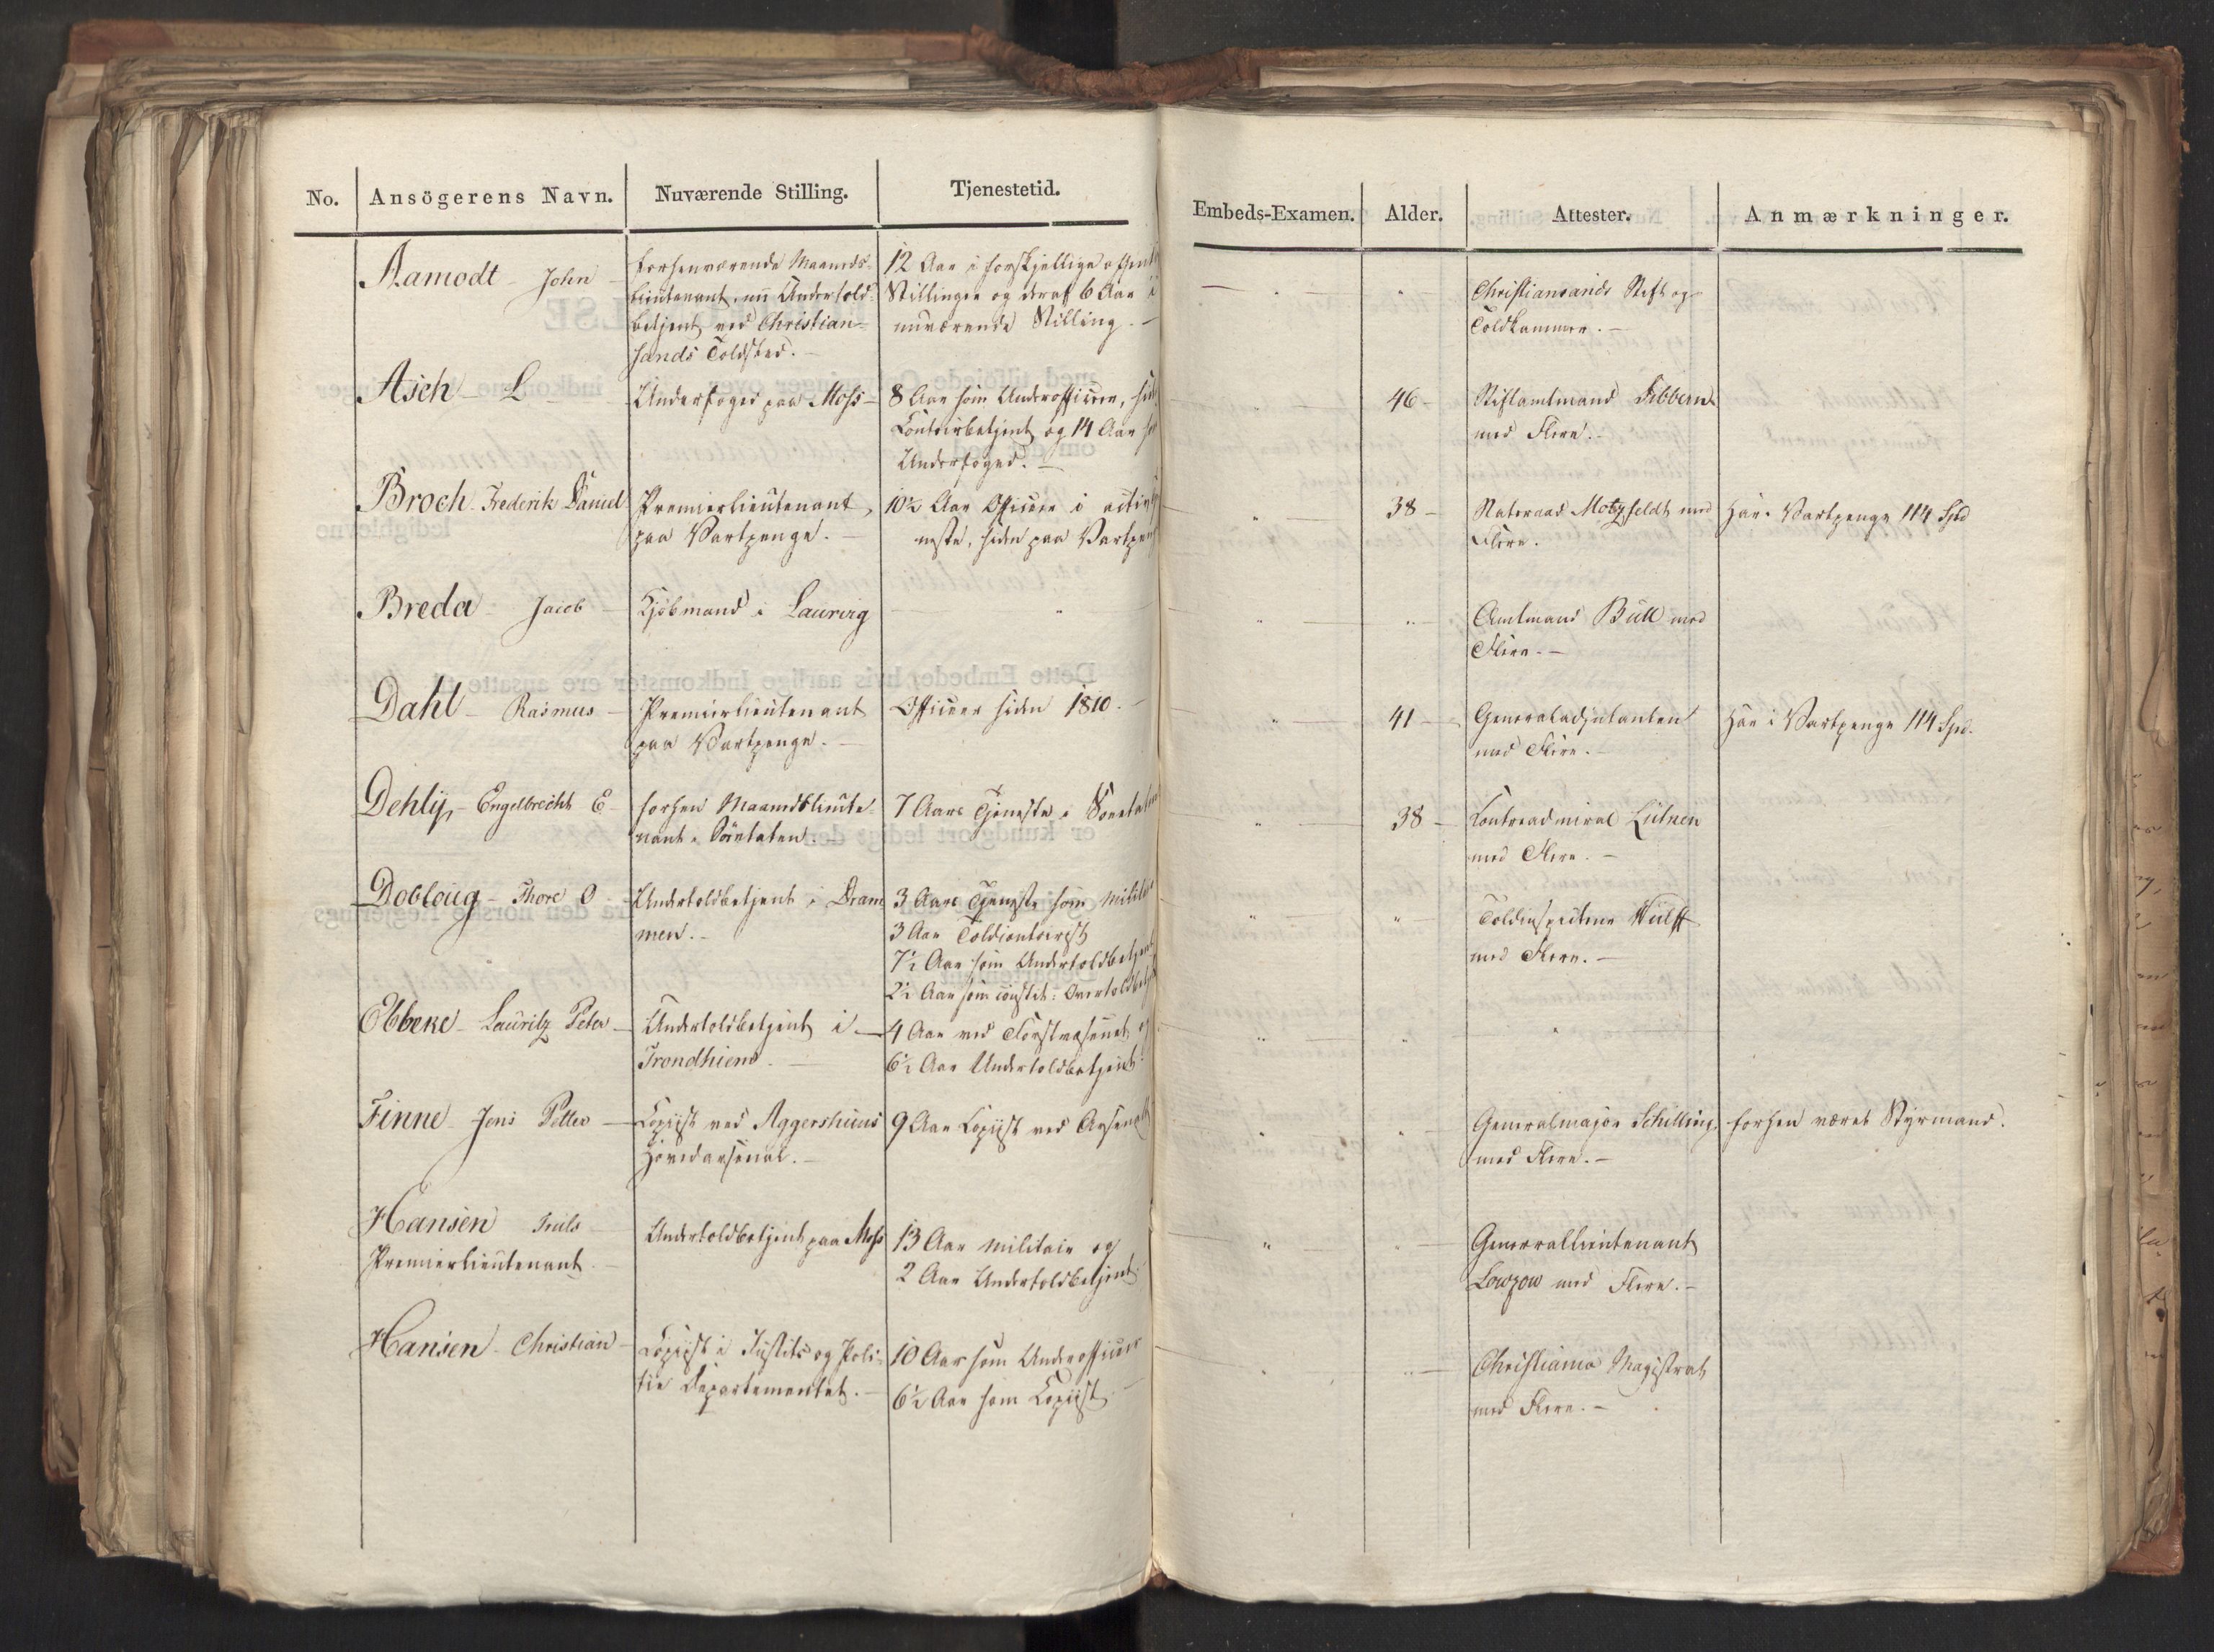 No. Ansögerens Navn. Nuværende Stilling. Tjenestetid. Embeds-Examen. Alder. Attester. Anmærkninger.
Aamodt John
forhenværende Maaneds-
lieutenant, nu Undertold-
betjent ved Christian-
sands Toldsted. -
12 Aar i forskjellige
Stillinger og deraf 6 Aar i
nuværende Stilling. -
Christiansands Stift og
Toldkammer. -
Asch L
Underfoged paa Moss
8 Aar som Underofficeer,
Contoirbetjent og 14 Aar
Underfoged. -
46 -
Stiftamtmand Sibbern
med Flere. -
Broch Frederik Daniel
Premierlieutenant,
paa Vartpenge. -
10½ Aar Officeer i
neste, siden paa
38 -
Statsraad Motzfeldt med
Flere.
Har i Vartpenge 114 Spd
Breda Jacob
Kjöbmand i Laurvig
"
Amtmand Bull med
Flere. -
Dahl - Rasmus -
Premierlieutenant
paa Vartpenge. -
Officeer siden 1810. -
41 -
Generaladjutanten
med Flere. -
Har i Vartpenge 114 Spd.
Dehly, - Engelbrecht E
forhen Maanedslieute-
nant i Söeetaten. -
7 Aars Tjeneste i
38 -
Contreadmiral Lütken
med Flere. -
Dobloug - Thore O -
Undertoldbetjent i Dram
men. -
3 Aars Tjeneste som
3 Aar Toldcontoirist
7½ Aar som Undertoldbetjent
2½ Aar som constit:
Toldinspecteur Wulff
med Flere. -
Ebbeke - Lauritz Peter -
Undertoldbetjent i -
Trondhiem. -
4 Aar ved Forstvæsenet og
6½ Aar Undertoldbetjent
Finne - Jens Petter -
Copiist ved Aggershuus
Hovedarsenal. -
9 Aar Copiist ved
Generalmajor Schilling.
med Flere. -
forhen været Styrmand.
Hansen Truls
Premierlieutenant. -
Undertoldbetjent paa Moss
13 Aar militair og
2 Aar Undertoldbetjent.
Generallieutenant
Lowzow med Flere. -
Hansen - Christian -
Copiist i Justits og Poli-
tie Departementet. -
10 Aar som Underofficeer
6½ Aar som Copiist.
Christiania Magistrat
med Flere. -